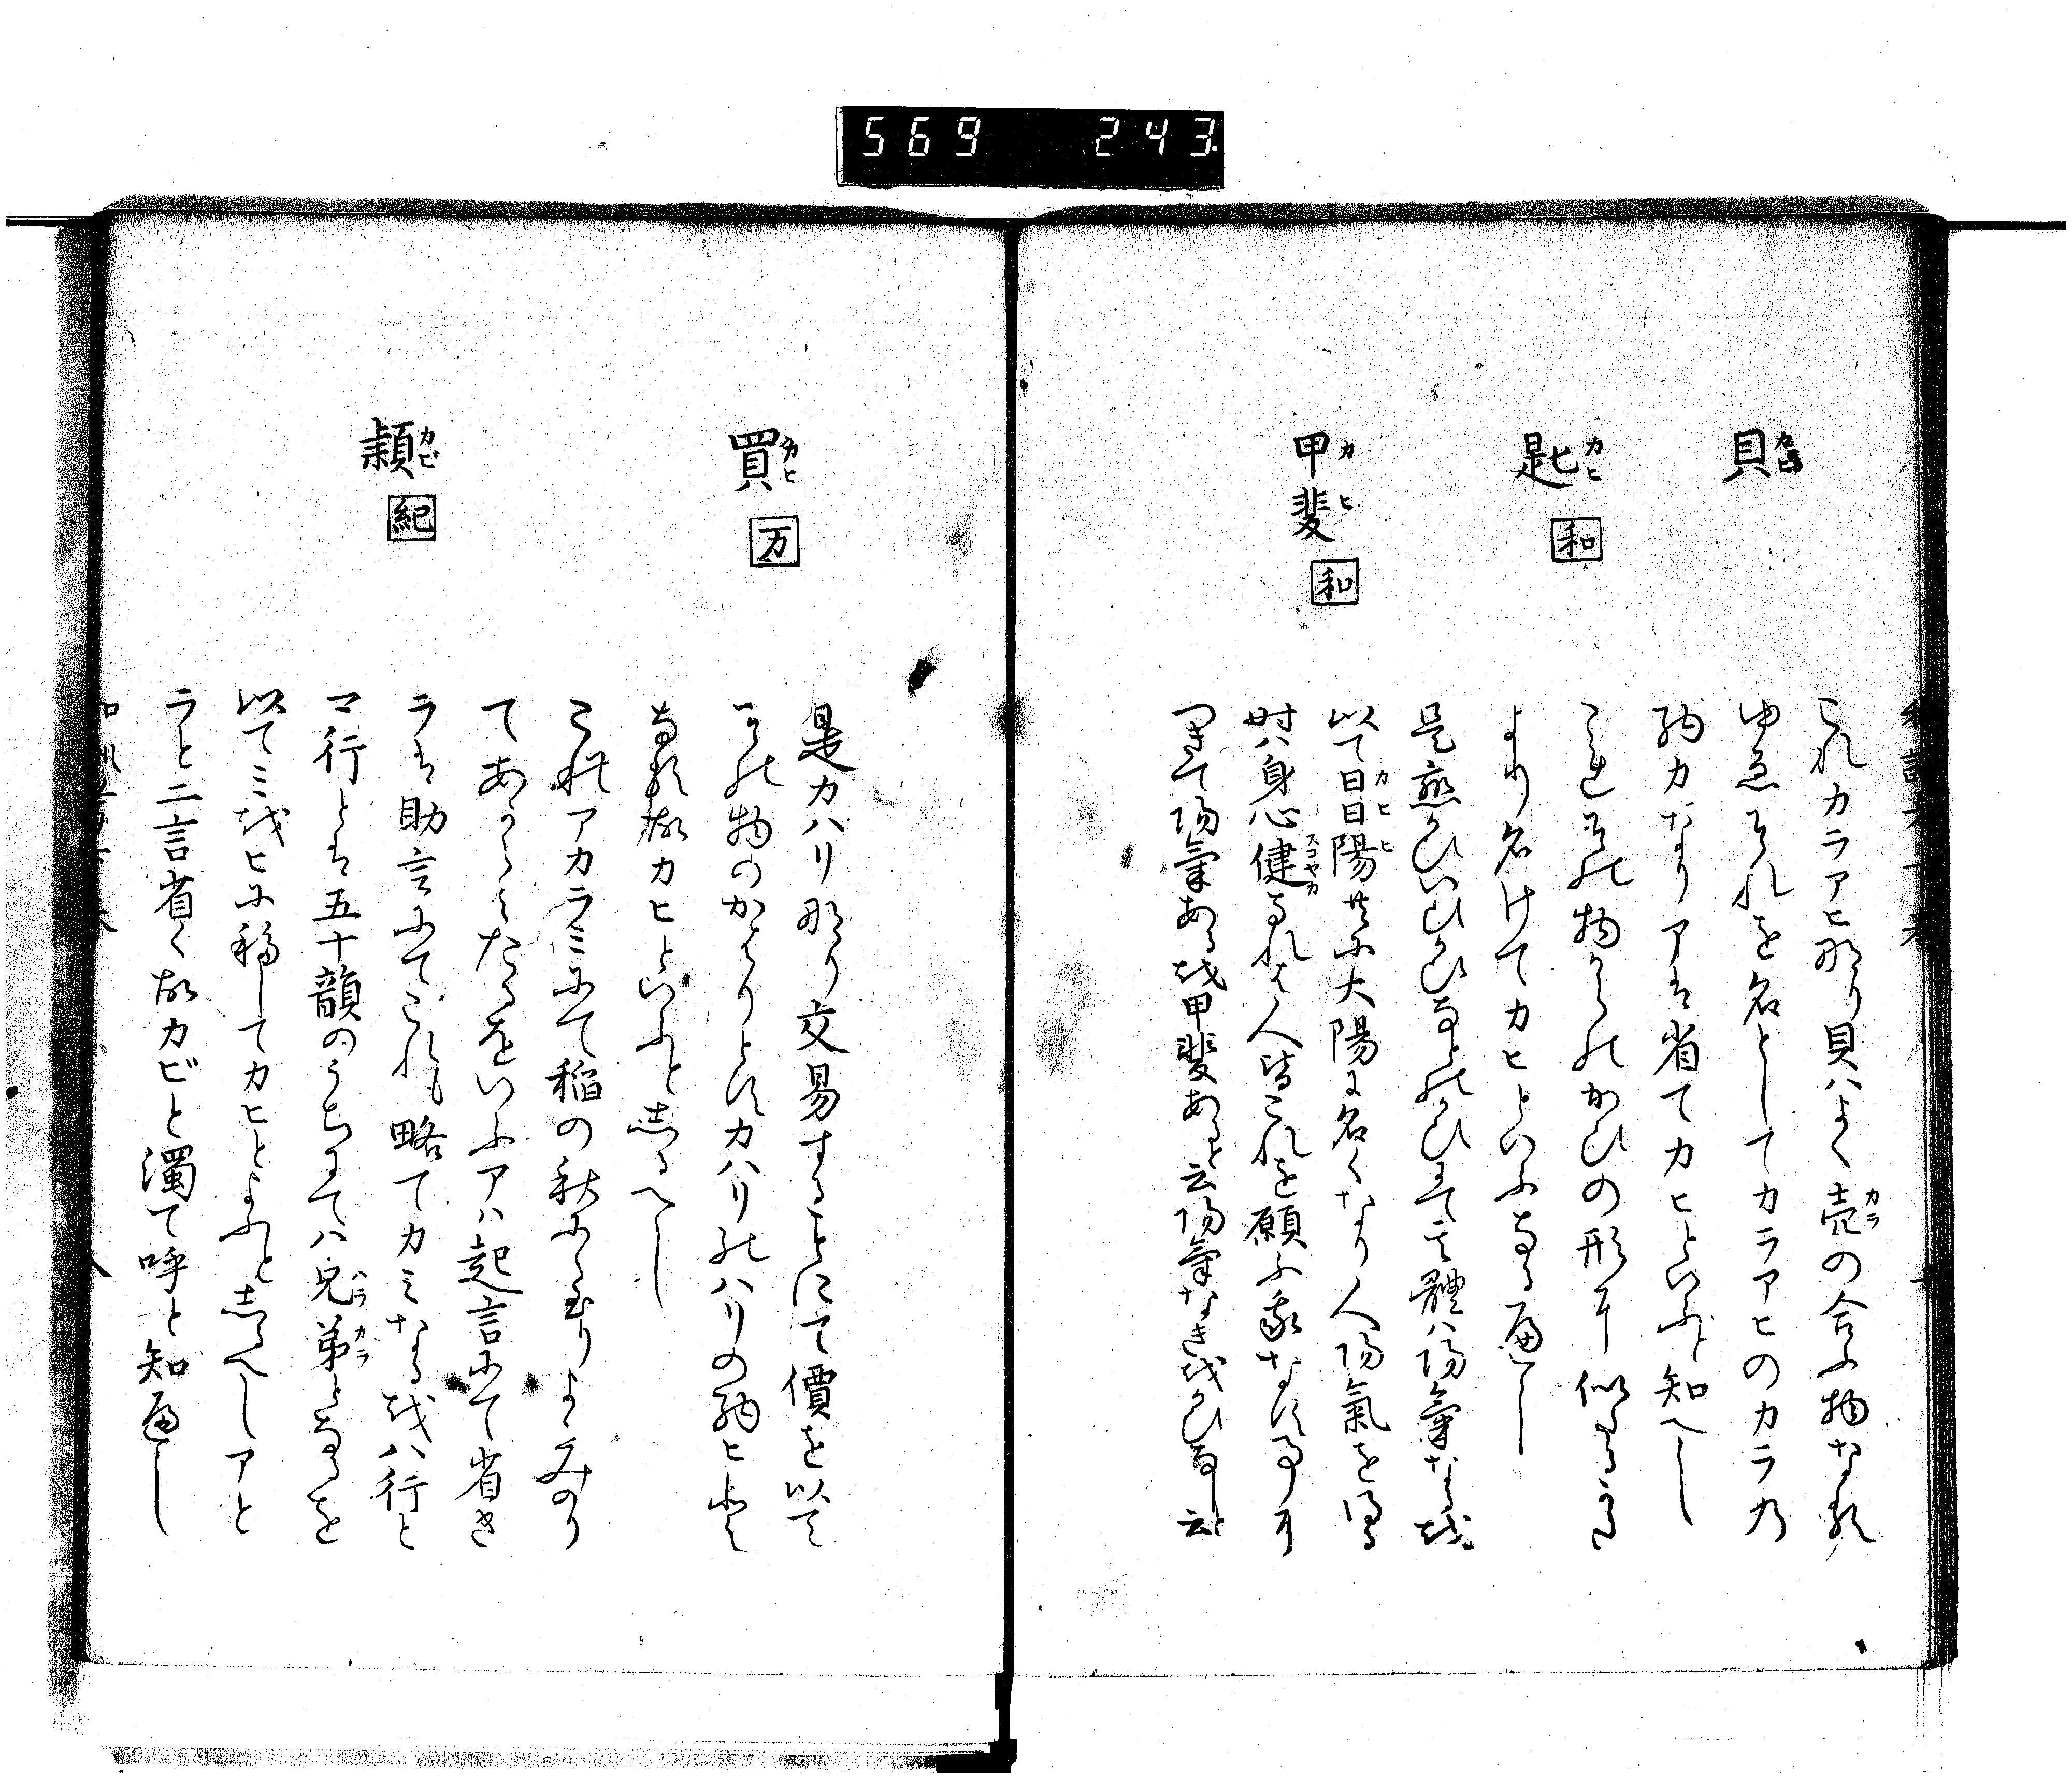 569 243
貝 カヒ
これカラアヒ那り貝ハよく売の合ふ物なれ
ゆゑそれを名としてカラアヒのカラ乃
約カなりアは省てカヒといふと知へし
匙 カヒ 和
これその物からのかひの形に似たる
より名けてカヒといふなる遍し
甲斐 カヒ 和
以て日日陽共に大陽に名くなり人陽氣を得る
時ハ身心健なれは人皆これを願ふ
つきて陽氣ある越甲斐あると云陽氣なき越かひなしと云
買 カヒ 万
是カハリ那り交易することにて價を以て
その物のかはりとすカハリのハリの約ヒ
なる故カヒといふと志るへし
穎 カビ 紀
これアカラミにて稲の秋に至りよくみのり
てあからみたるをいふアハ起言にて省き
ラは助言にてこれも略てカミなる越ハ行と
マ行とは五十韻のうちにてハ兄弟となるを
以てミ越ヒに移してカヒとよふと志るへしアと
ラと二言省く故カビと濁て呼と知遍し